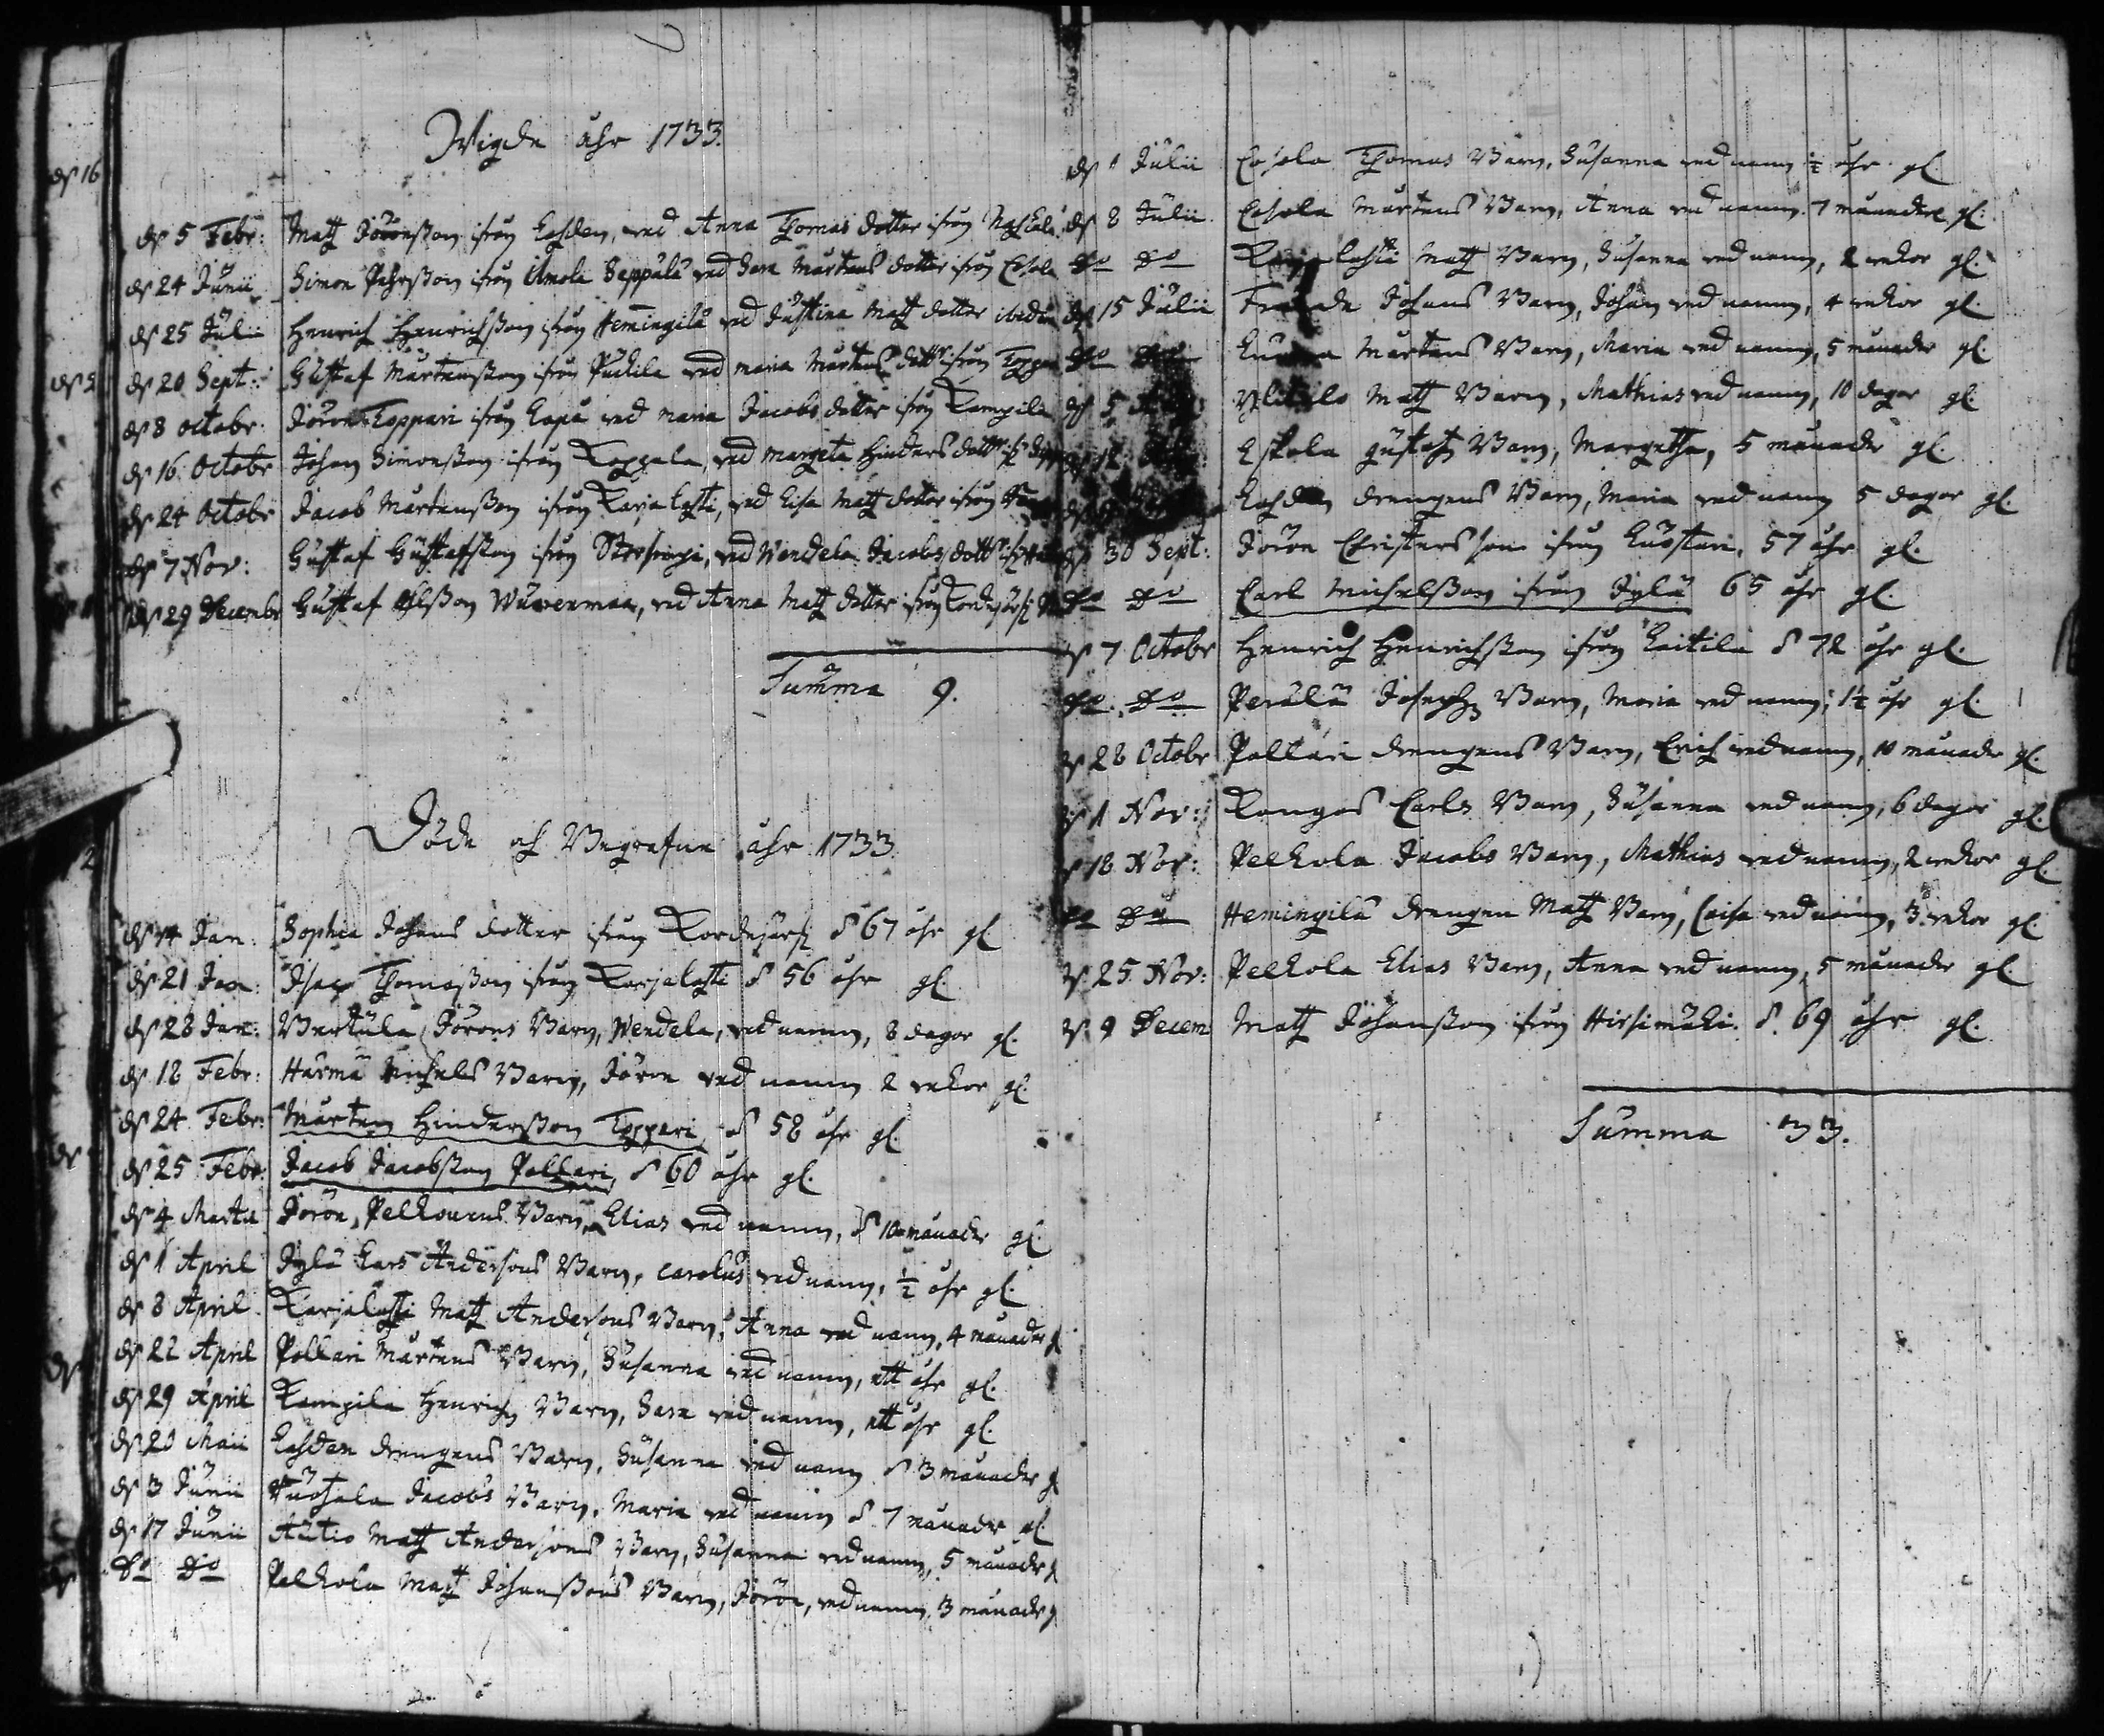 Wigde åhr 1733.
d 5 Febr: Matz Jöronsson ifrån Lahden, med Anna Thomas dotter ifrån
d 24 Junii Simon Pehrsson ifrån Amola Seppälä med Sara Mårtens dotter ifrån Cohola
d 25 Julii Henrich Henrichsson ifrån Hemingilä med Justina Matz dotter ibidem
d 20 Sept: Gustaf Mårtensson ifrån Puckila med Maria Mårtens dotter ifrån
d 8 octobr: Jöran Toppari ifrån Lapå med Maria Jacobs dotter ifrån Kampila
d 16 Octobr Johan Simonsson ifrån Koppala, med Margeta Hinders dotter
d 24 Octobr Jacob Mårtensson ifrån Karjalahti, med Lisa Matz dotter ifrån
d 7 Nov: Gustaf Gustafsson ifrån, med Wendela Jacobs dotter
d 29 Decembr Gustaf, med Anna Matz dotter ifrån
Summa 9.
Döde och Begrafne åhr 1733
d 14 Jan: Sophia Johans dotter ifrån Kordesjärfi d 67 åhr gl
d 21 Jan: Isac Thomasson ifrån Karjalahti d 56 åhr gl.
d 28 Jan: Jörans Barn, Wendela, ved namn, 8 dagar gl.
d 18 Febr: Härmä Michels Barn, Jöran ved namn 2 wekor gl.
d 24 Febr: Mårten Hindersson Toppari d 58 åhr gl.
d 25 Febr: Jacob Jacobsson Pollari, d 60 åhr gl.
d 4 Martii Jöran Pelkonens Barn, Elias ved namn, d 10 månader gl.
d 1 April Jylä Lars Andersons Barn, Carolus ved namn, ½ åhr gl.
d 8 April Karjalahti Matz Andersons Barn, Anna ved namn, 4 månader gl
d 22 April Pollari Mårtens Barn, Susanna ved namn, ett åhr gl.
d 29 April Kampila Henrichs Barn, Sara ved namn, ett åhr gl.
d 20 Maii Lahden drengens Barn, Susanna ved namn d 3 månader gl
d 3 Junii Jacobs Barn, Maria ved namn d 7 månader gl.
d 17 Junii Autio Matz Andersons Barn, Susanna ved namn, 5 månader gl
Do Do Pelkola Matz Johanssons Barn, Jöran, ved namn, 3 månader gl
d 1 Julii Cohola Thomas Barn, Susanna ved namn ½ åhr gl.
d 8 Julii Cohola Mårtens Barn, Anna ved namn 7 månader gl.
Do Do Matz Barn, Susanna ved namn, 2 wekor gl.
d 15 Julii Johans Barn, Johan ved namn, 4 wekor gl.
Mårtens Barn, Maria ved namn, 5 månader gl.
Ylitalo Matz Barn, Mathias ved namn, 10 dagar gl.
Eskola Gustafs Barn, Margetha, 5 månader gl.
Lahden drengens Barn, Maria ved namn 5 dagar gl.
d 30 Sept: Jöran Christersson ifrån, 57 åhr gl.
Do Do Carl Michelsson ifrån Jylä 65 åhr gl.
d 7 Octobr Henrich Henrichsson ifrån Laitila d 72 åhr gl.
Do Do Perälä Josephs Barn, Maria ved namn, 1½ åhr gl.
d 28 Octobr Pollari drengens Barn, Erich ved namn, 10 månader gl.
d 1 Nov: Kangas Carls Barn, Susanna ved namn, 6 dagar gl.
d 18 Nov: Pelkola Jacobs Barn, Mathias ved namn, 2 wekor gl.
Do Do Hemingilä drengen Matz Barn, Caisa ved namn, 3 wekor gl.
d 25 Nov: Pelkola Elias Barn, Anna ved namn, 5 månader gl.
d 9 Decem Matz Johansson ifrån Hirsimäki d. 69 åhr gl.
Summa 33.